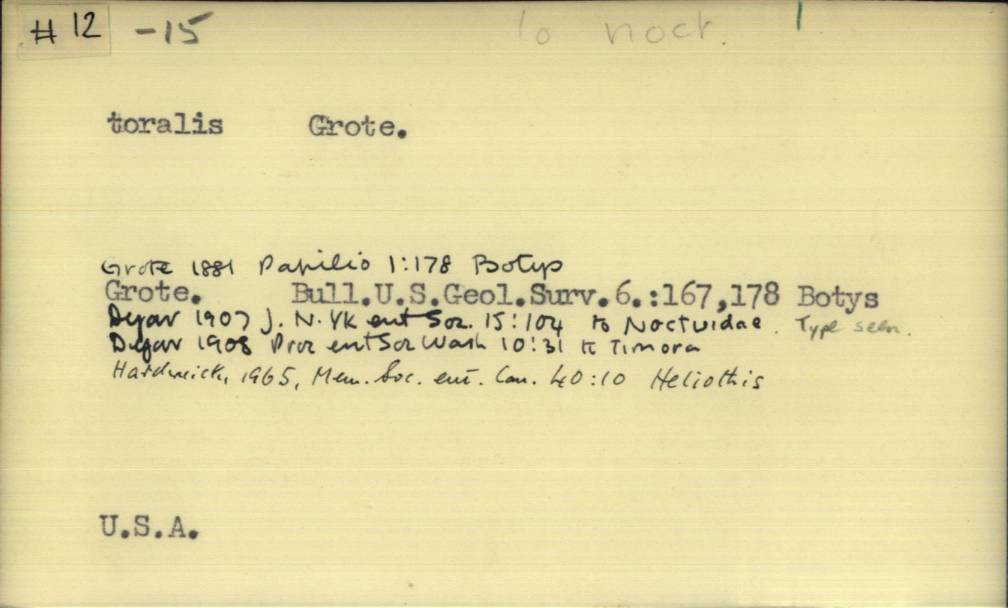 # 12 -15 to noct.
toralis Grote.
Grote 1881 Papilio 1:178 Botys
Grote. Bull.U.S.Geol.Surv.6.:167,178 Botys
Dyar 1907 J. N. Yk ent Soc. 15:104 to Noctuidae. Type seen.
Dyar 1908 Proc ent Soc Wash 10:31 to Timora
Hardwick, 1965, Mem. Soc. ent. Can. 40:10 Heliothis
U.S.A.